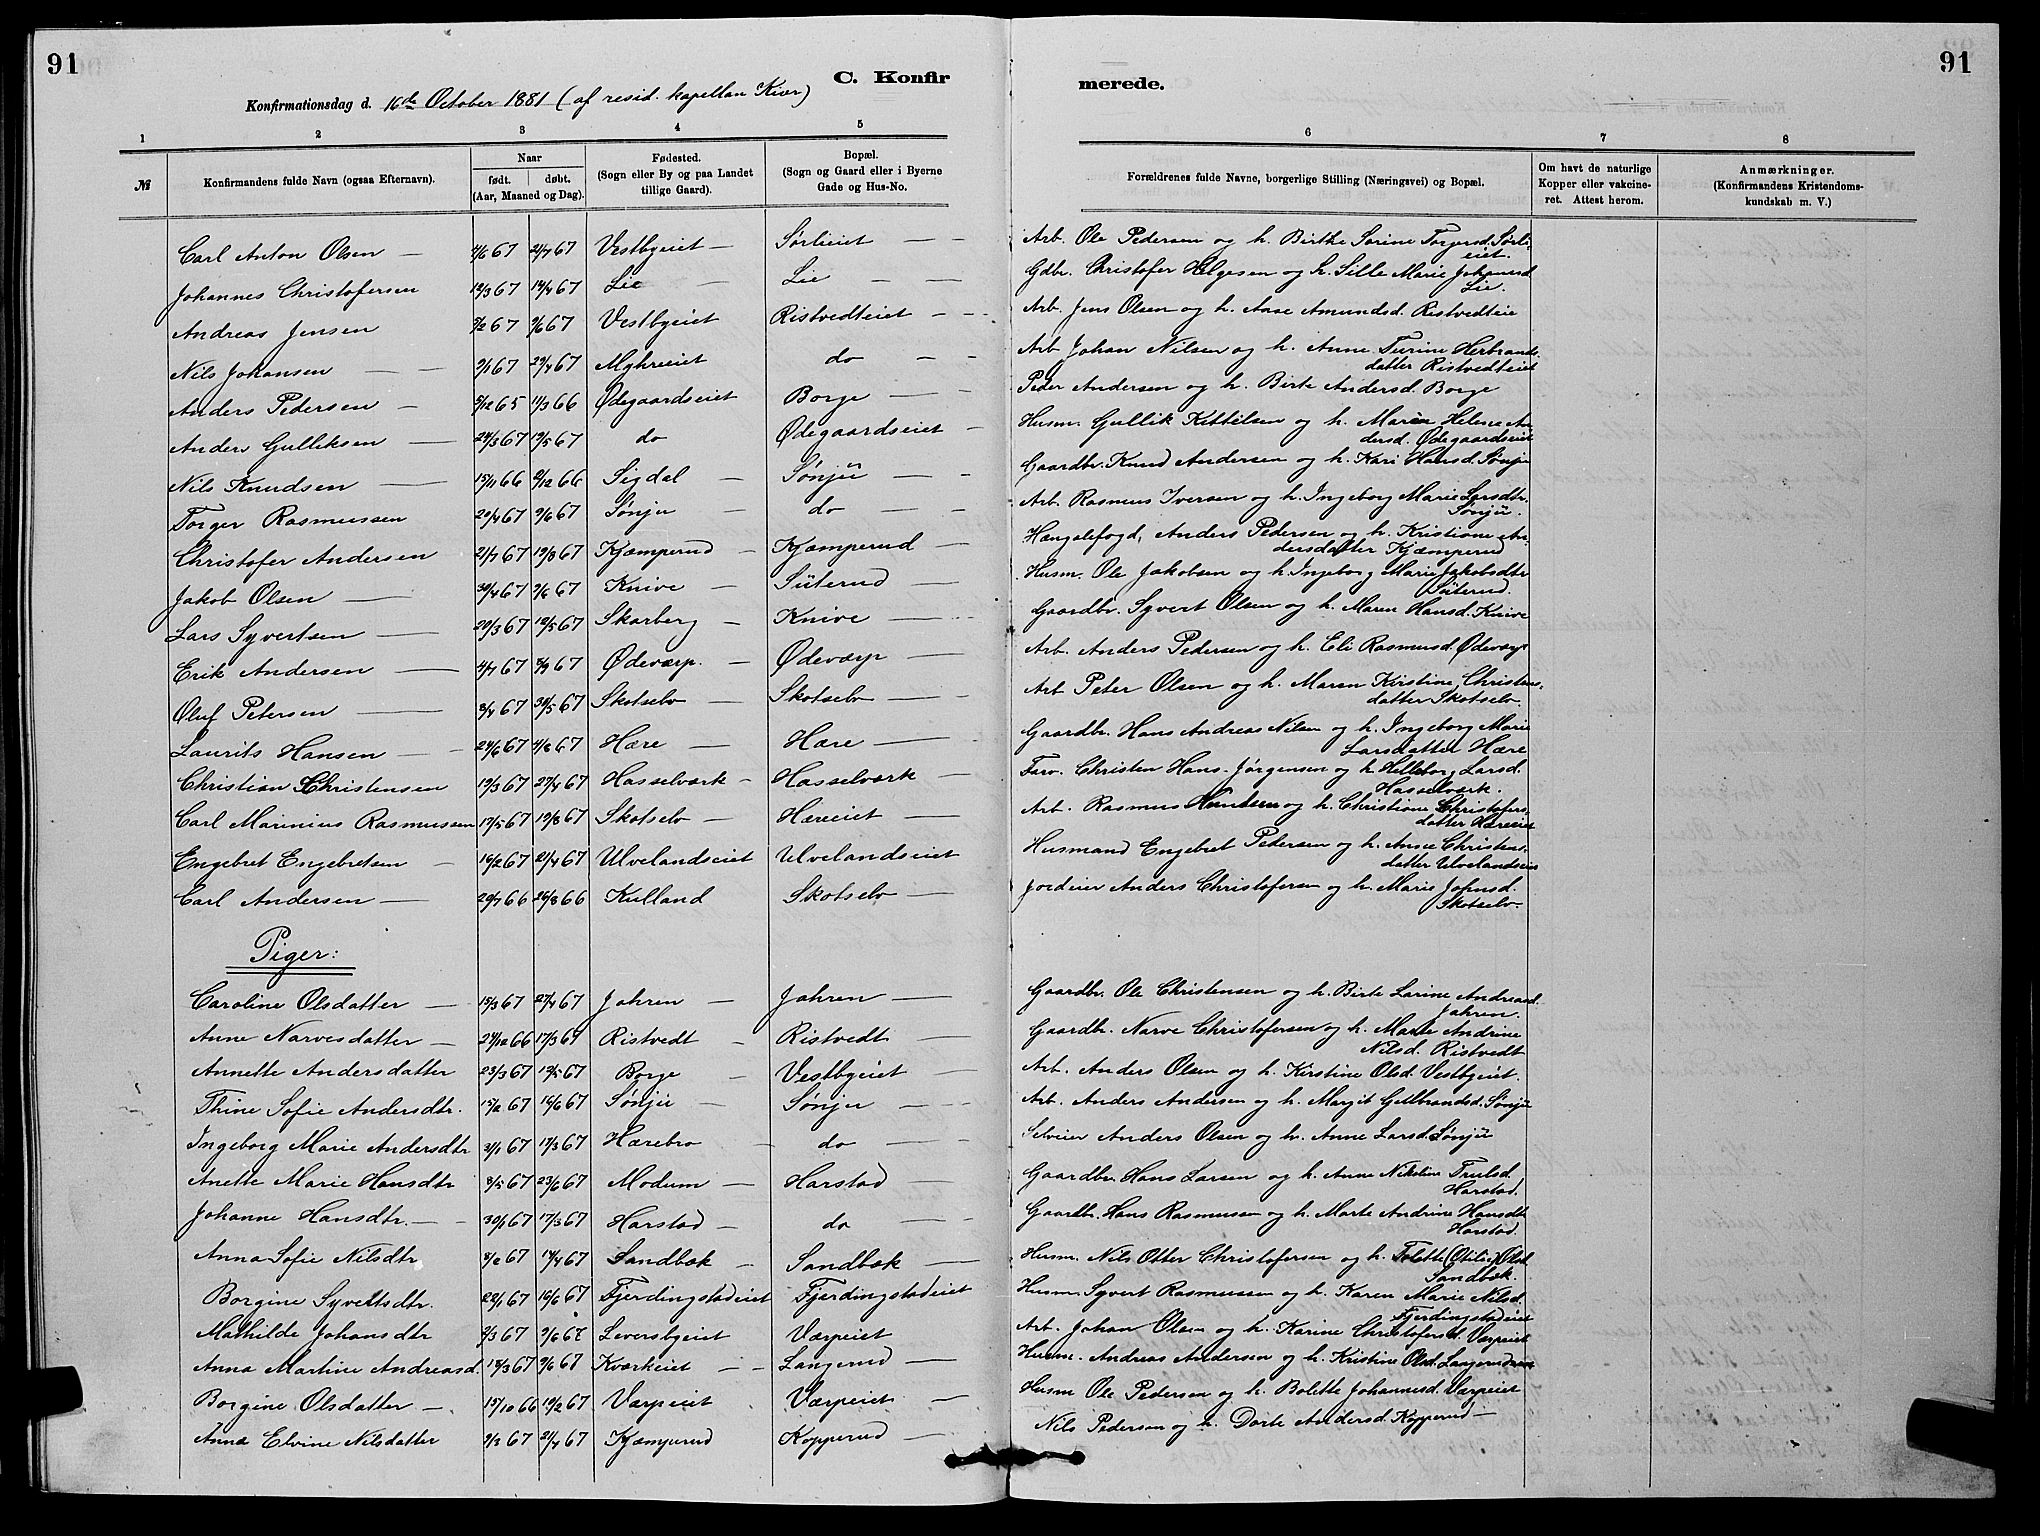 91
91
C. Konfir
merede.
Konfirmationsdag d. 16de October 1881 (af resid. kapellan Kiær)
1 2 3 4 5 6 7 8
№ Konfirmandens fulde Navn (ogsaa Efternavn). Naar født. døbt. (Aar, Maaned og Dag). Fødested. (Sogn eller By og paa Landet tillige Gaard). Bopæl. (Sogn og Gaard eller i Byerne Gade og Hus-No. Forældrenes fulde Navne, borgerlige Stilling (Næringsvei) og Bopæl. Om havt de naturlige Kopper eller vakcineret. Attest herom. Anmærkninger. (Konfirmandens Kristendomskundskab m. V.)
Carl Anton Olsen — 2/6 67 21/7 67 Vestbyeiet — Sørlieiet — Arb. Ole Pedersen og h. Birthe Sorine Torgersd. Sørlieiet.
Johannes Christofersen 12/3 67 14/4 67 Lie Lie — Gdbr. Christofer Helgesen og h. Sille Marie Johannesd. Lie.
Andreas Jensen 5/2 67 9/6 67 Vestbyeiet Ristvedteiet — Arb. Jens Olsen og h. Aase Amundsd. Ristvedteie
Nils Johansen — 9/1 67 29/4 67 Myhreeiet do — Arb Johan Nilsen og h. Anne Turine Herbrandsdatter Ristvedteiet
Anders Pedersen — 5/12 65 11/3 66 Ødegaardseiet Borge — Peder Andersen og h. Birte Andersd. Borge
Anders Gulliksen — 24/3 67 19/5 67 do Ødegaardseiet — Husm. Gullik Kittelsen og h. Maren Helene Andersd. Ødegaardseiet
Nils Knudsen — 15/11 66 9/12 66 Sigdal — Sønju — Gaardbr. Knud Andersen og h. Kari Hansd. Sønju
Torger Rasmussen 20/4 67 9/6 67 Sønju — do — Arb. Rasmus Iversen og h. Ingeborg Marie Larsdtr. Sønju.
Christofer Andersen 21/7 67 19/8 67 Kjæmperud — Kjæmperud — Hængslefogd, Anders Pedersen og h. Kristiane Andersdatter Kjæmperud
Jakob Olsen — 30/4 67 9/6 67 Knive — Süterud — Husm. Ole Jakobsen og h. Ingeborg Marie Jakobsdtr Süterud.
Lars Syvertsen — 20/3 67 12/5 67 Skarberg — Knive — Gaardbr. Syvert Olsen og h. Maren Hansd. Knive
Erik Andersen — 4/7 67 8/9 67 Ødeværp. — Ødeværp — Arb. Anders Pedersen og h. Eli Rasmusd. Ødeværp
Oluf Petersen — 8/4 67 30/5 67 Skotselv — Skotselv — Arb Peter Olsen og h. Maren Kirstine Christensdatter Skotselv.
Laurits Hansen — 24/6 67 4/8 67 Hære — Hære — Gaardbr. Hans Andreas Nilsen og h. Ingeborg Marie Larsdatter Hære
Christian Christensen 19/3 67 27/4 67 Hasselværk — Hasselværk — Farv. Christen Hans-Jørgensen og h. Helleborg Larsd. Hasselværk.
Carl Marinius Rasmussen 17/5 67 19/8 67 Skotselv — Hæreeiet — Arb. Rasmus Knudsen og h. Christiane Christofersdatter Hæreeiet
Engebret Engebretsen — 16/2 67 21/4 67 Ulvelandseiet Ulvelandseiet Husmand Engebret Petersen og h. Anne Christensdatter Ulvelandseie
Carl Andersen — 20/7 66 26/8 66 Kulland Skotselv — Jordeier Anders Christofersen og h. Marie Johnsd. Skotselv.
Piger:
Caroline Olsdatter — 15/3 67 27/4 67 Jahren — Jahren — Gaardbr. Ole Christensen og h. Birte Larine Andreasd. Jahren.
Anne Narvesdatter — 24/12 66 17/3 67 Ristvedt — Ristvedt — Gaardbr. Narve Christofersen og h. Marte Andrine Nilsd. Ristvedt
Annette Andersdatter 23/3 67 12/5 67 Borge — Vestbyeiet — Arb. Anders Olsen og h. Kirstine Olsd. Vestbyeiet.
Thine Sofie Andersdtr. 15/2 67 16/6 67 Sønju — Sønju — Arb. Anders Andersen og h. Margit Gulbrandsd. Sønju
Ingeborg Marie Andersdtr 3/1 67 17/3 67 Hærebro — do — Selveier Anders Olsen og h. Anne Larsd. Sønju
Anette Marie Hansdtr 8/5 67 23/6 67 Modum — Harstad — Gaardbr. Hans Larsen og h. Anne Nikoline Trulsd. Harstad.
Johanne Hansdtr. — 30/1 67 17/3 67 Harstad — do — Gaardbr. Hans Rasmussen og h. Marte Andrine Hansdt Harstad.
Anna Sofie Nilsdtr 8/2 67 14/4 67 Sandbæk — Sandbæk — Husm. Nils Otter Christofersen og h. Tolette (Otilie) Olsd Sandbæk.
Borgine Syvertsdtr. 22/1 67 16/6 67 Fjerdingstadeiet Fjerdingstadeiet Husm. Syvert Rasmussen og h. Karen Marie Nilsd. Fjerdingstadeiet
Mathilde Johansdtr 7/3 67 9/6 67 Leversbyeiet Værpeiet Arb. Johan Olsen og h. Karine Christofersd. Værpeiet
Anna Martine Andreasd. 18/3 67 9/6 67 Kværkeiet — Langerud — Husm. Andreas Andersen og h. Kristine Olsd. Langerud
Borgine Olsdatter — 15/10 66 10/2 67 Værpeiet Værpeiet — Husm Ole Pedersen og h. Bolette Johannesd. Værpeiet
Anna Elvine Nilsdatter 9/3 67 21/4 67 Kjæmperud Kopperud — Nils Pedersen og h. Dorte Andersd. Kopperud —